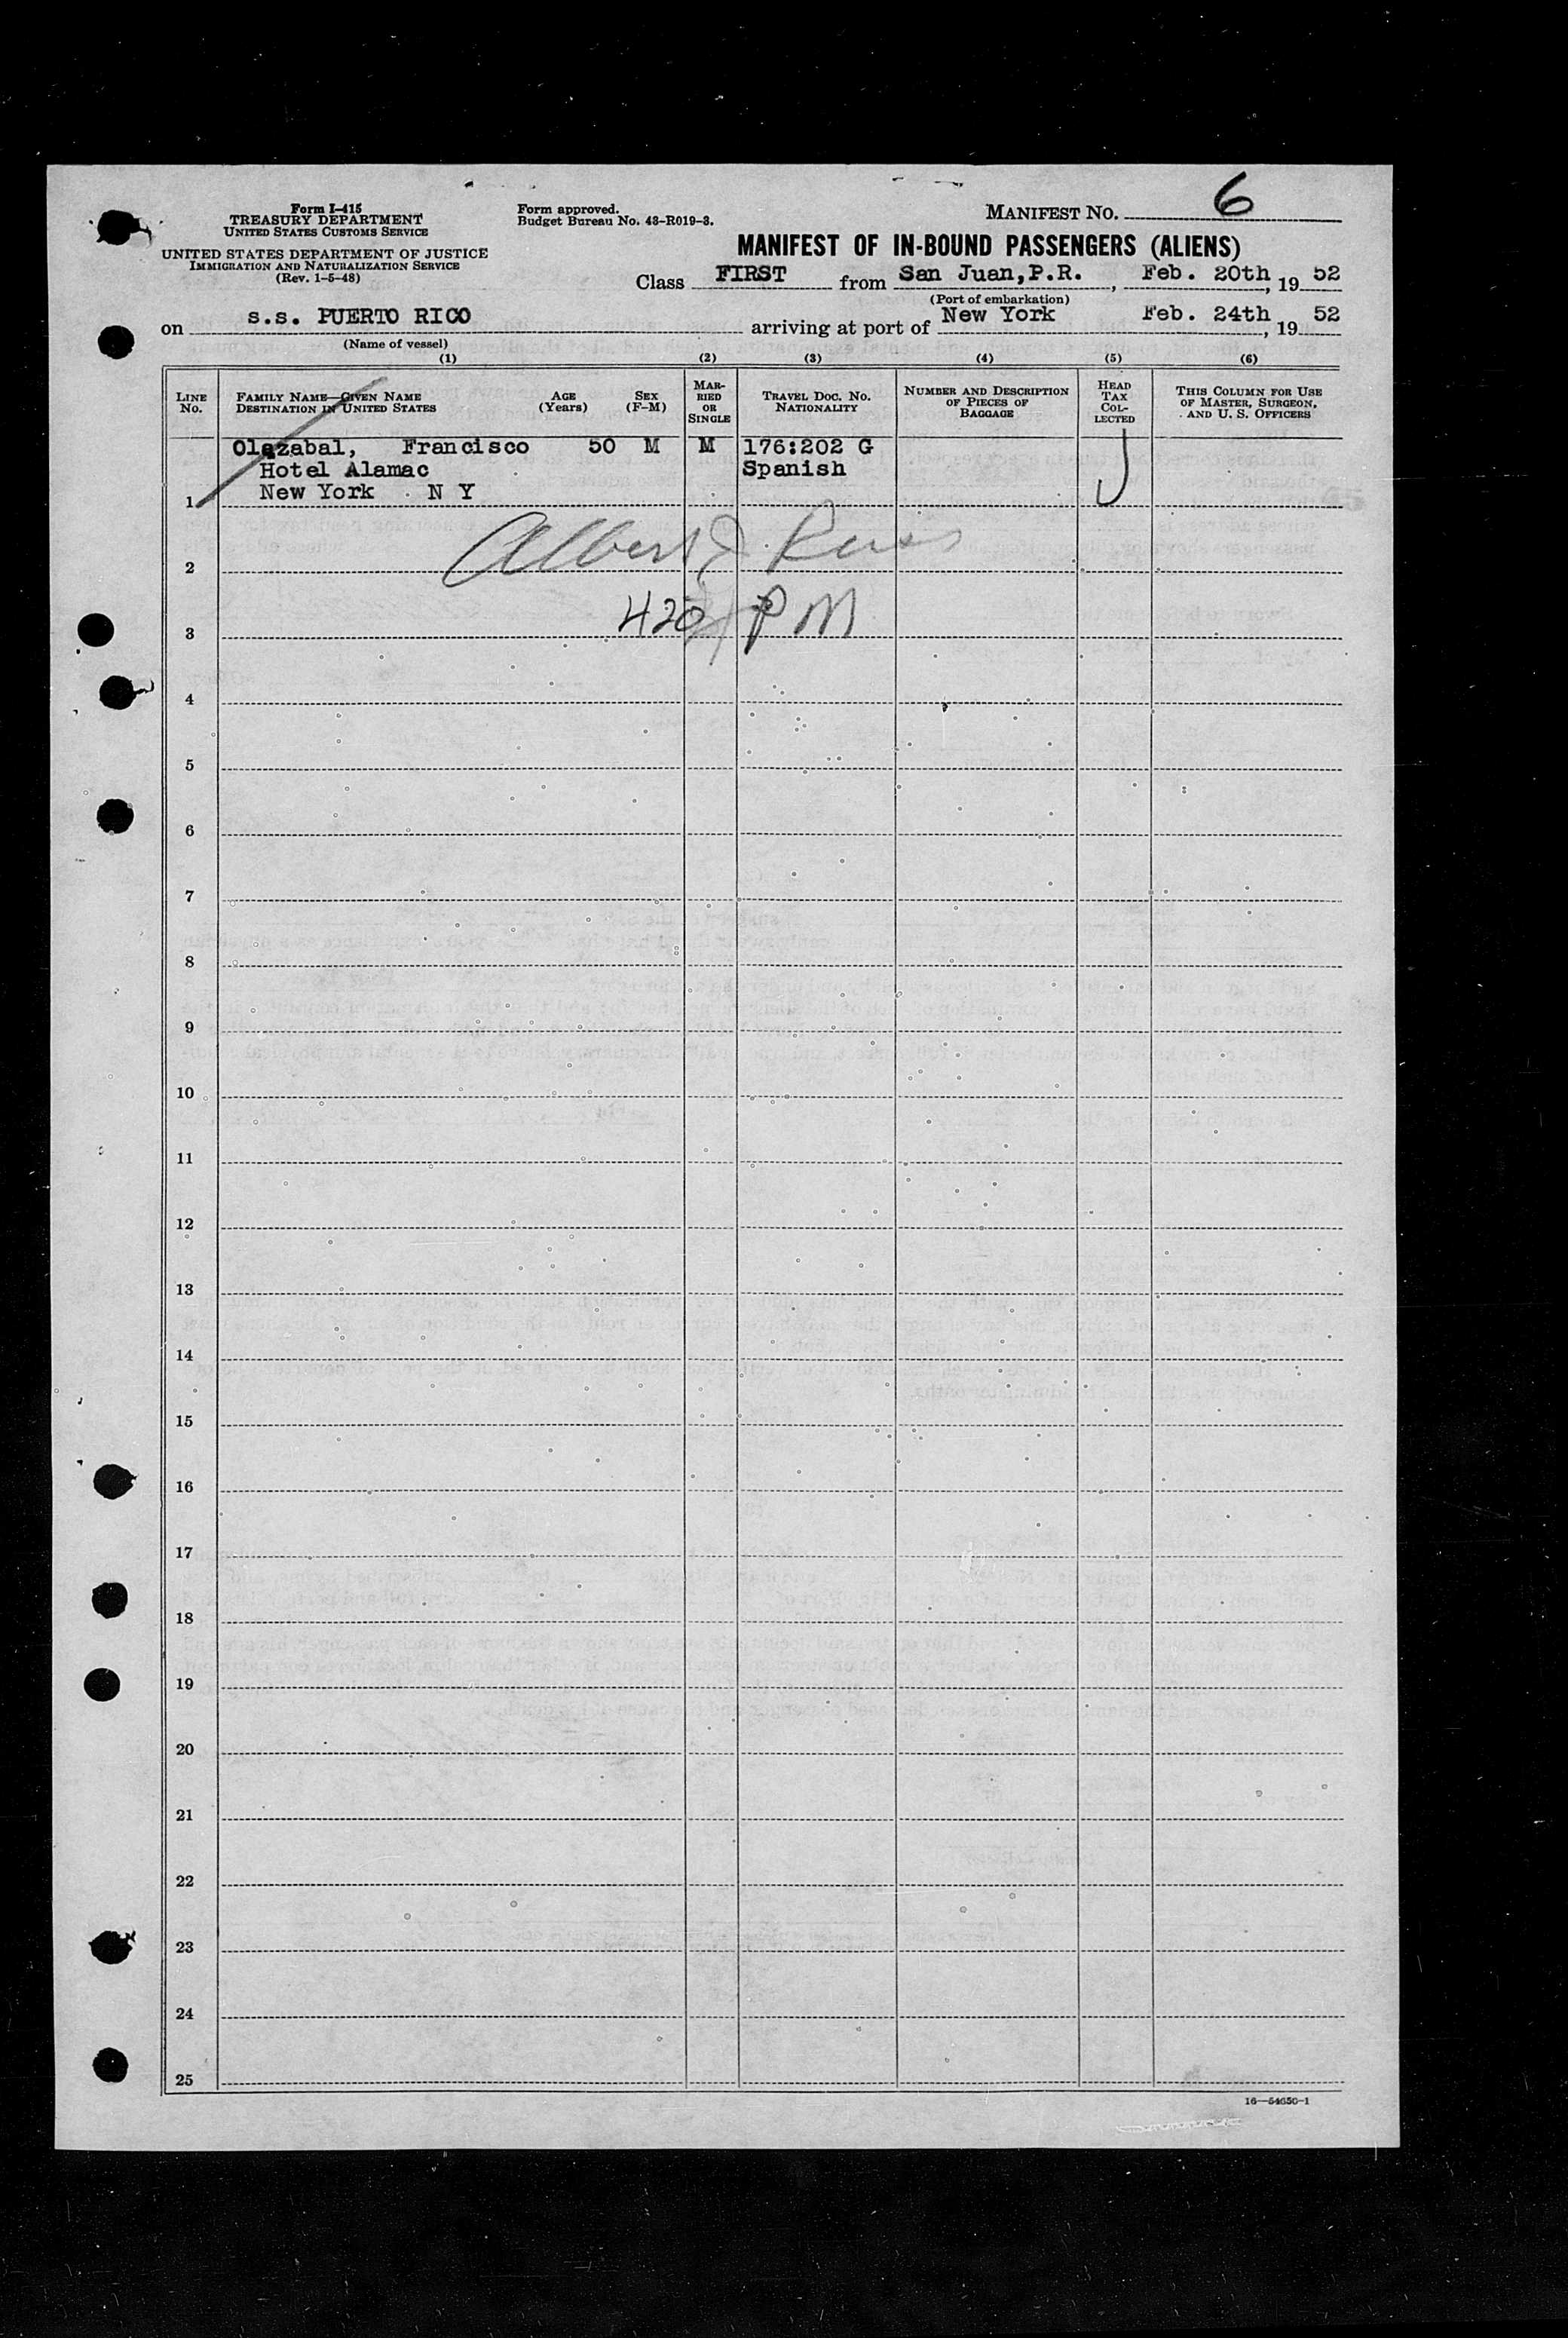 Form I-415
TREASURY DEPARTMENT
UNITED STATES CUSTOMS SERVICE
UNITED STATES DEPARTMENT OF JUSTICE
IMMIGRATION AND NATURALIZATION SERVICE
(Rev. 1-5-48)
Form approved.
Budget Bureau No. 43-R019-3.
MANIFEST NO. 6
MANIFEST OF IN-BOUND PASSENGERS (ALIENS)
Class FIRST from San Juan, P.R., Feb. 20th, 19 52
(Port of embarkation)
on s.s. PUERTO RICO arriving at port of New York Feb. 24th, 19 52
(Name of vessel)
(1) (2) (3) (4) (5) (6)
LINE NO.
FAMILY NAME—GIVEN NAME
DESTINATION IN UNITED STATES
AGE (Years)
SEX (F-M)
MARRIED OR SINGLE
TRAVEL DOC. NO.
NATIONALITY
NUMBER AND DESCRIPTION OF PIECES OF BAGGAGE
HEAD TAX COLLECTED
THIS COLUMN FOR USE OF MASTER, SURGEON, AND U. S. OFFICERS
Olazabal, Francisco 50 M M 176:202 G
Hotel Alamac Spanish
1 New York N Y
2 Albert J.
3 420 PM
4
5
6
7
8
9
10
11
12
13
14
15
16
17
18
19
20
21
22
23
24
25
16—54650-1